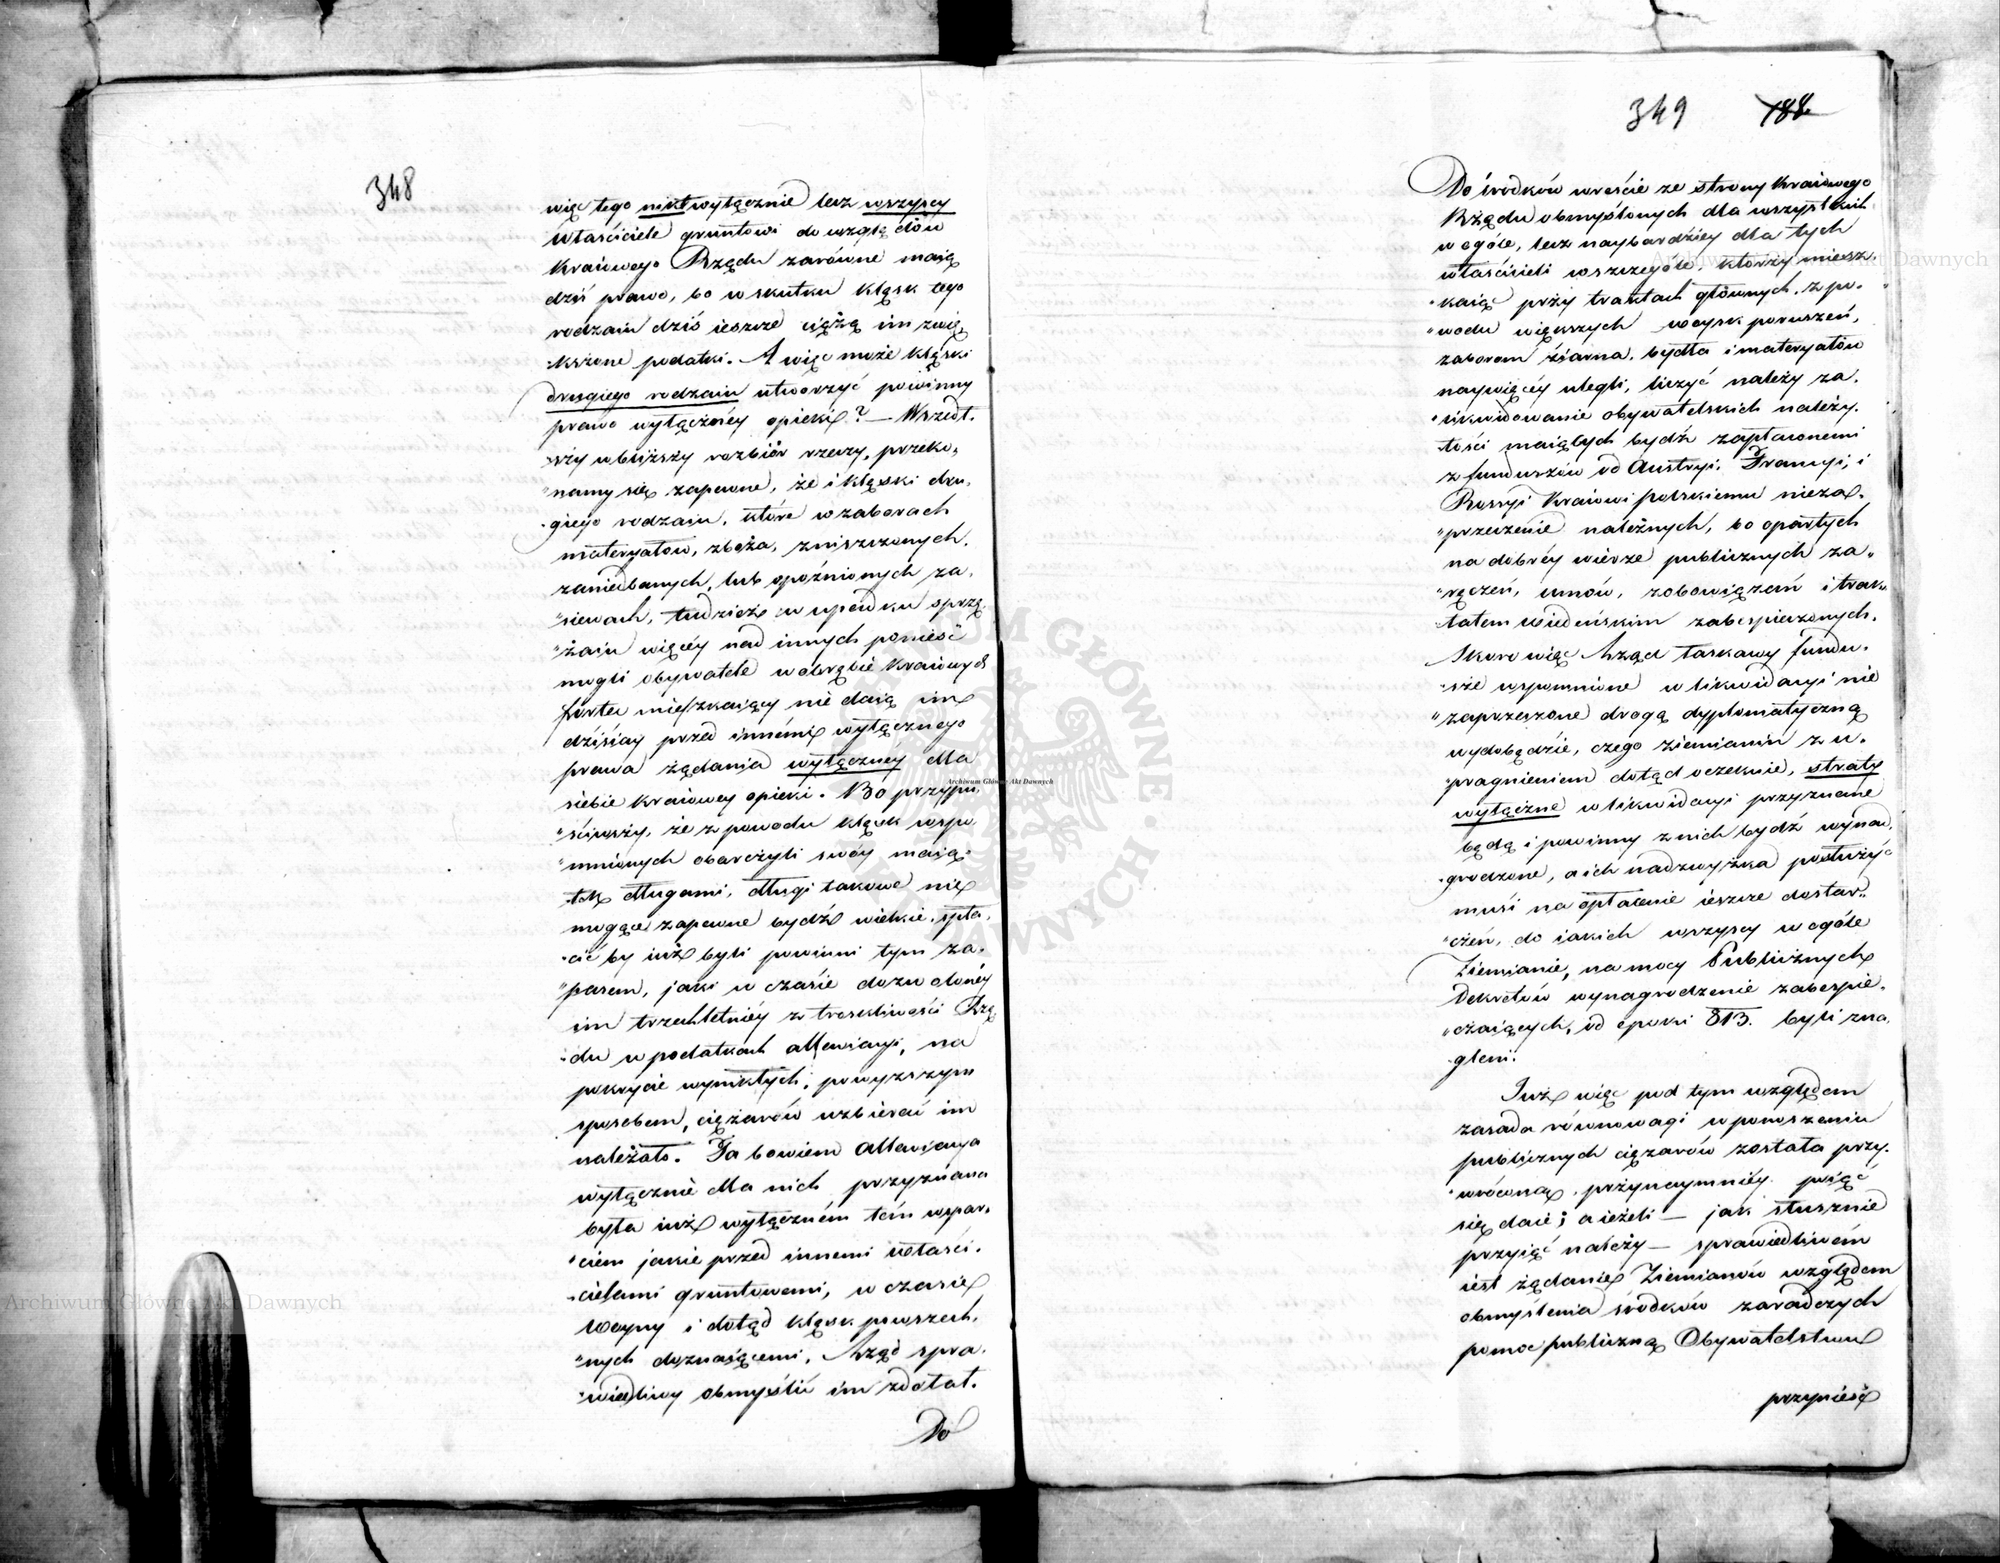 348
więc tego nikt wyłącznie lecz wszyscy
właściciele gruntowi do względów
Kraiowego Rządu zarówne maią
dziś prawo, bo w skutku klęsk tego
rodzaiu dziś ieszcze ciężą im zwię„
„kszone podatki. A więc może klęski
drugiego rodzaiu utworzyć powinny
prawo wyłączney opieki? — Wszedł„
„szy w bliższy rozbiór rzeczy, przeko„
„namy się zapewne, że i klęski dru„
„giego rodzaiu, które w zaborach
materyałów, zboża, zniszczonych,
zaniedbanych, lub opóźnionych za„
„siewach, tudzież w upadku sprzę„
„żaiu więcéy nad innych ponieść
mogli obywatele w obrębie Kraiowych
fortec mieszkaiący nie daią im
dzisiay przed innémi wyłącznego
prawa żądania wyłącznéy dla
siebie kraiowey opieki. Bo przypu„
„ściwszy, że z powodu klęsk wspo„
„mnionych obarczyli swóy maią„
tek długami, długi takowe nie
mogące zapewne bydź wielkie, spła„
„cić by iuż byli powinni tym za„
„pasem, jaki w czasie dozwolonéy
im trzechletniéy z troskliwości Rzą„
„du w podatkach allewiacyi, na
pokrycie wynikłych, powyższym
sposobem, ciężarów uzbierać im
należało. Ta bowiem allewiacya
wyłącznie dla nich przyznana
była iuż wyłączném tém wspar„
„ciem jakie przed innemi właści„
„cielami gruntowemi, w czasie
Woyny i dotąd klęsk powszech„
„nych doznaiącemi, Rząd spra„
„wiedliwy obmyślić im zdołał.
Do
349 188
Do środków wreście ze strony Kraiowego
Rządu obmyślonych dla wszystkich
w ogóle, lecz naybardziey dla tych
właścicieli wszczególe, którzy miesz„
„kaiąc przy traktach głównych, z po„
„wodu większych woysk poruszeń,
zaborom ziarna, bydła i materyałów
naywięcéy ulegli, liczyć należy za„
„likwidowanie obywatelskich należy„
tości maiących bydź zapłaconemi
z funduszów od Austryi, Francyi, i
Rossyi Kraiowi polskiemu nieza„
„przeczenie należnych, bo opartych
na dobréy wierze publicznych za„
„ręczeń, umów, zobowiązań i trak„
tatem Wiedeńskim zabespieczonych.
Skoro więc Rząd łaskawy fundu„
„sze wspomnione w likwidacyi nie
„zaprzeszone drogą dyplomatyczną
wydobędzie, czego ziemianin z u„
„pragnieniem dotąd oczekuie, straty
wyłączne w likwidacyi przyznane
będą i powinny z nich bydź wynad„
„grodzone, a ich nadzwyżka posłużyć
musi na opłacenie ieszcze dostar„
„czeń, do iakich wszyscy w ogóle
Ziemianie, na mocy Publicznych
Dekretów wynagrodzenie zabespie„
„czaiących, od epoki 813. byli zna„
gleni.
Iuż więc pod tym względem
zasada równowagi w ponoszeniu
publicznych ciężarów została przy„
„wróconą, przynaymniéy poiąć
się daie; a ieżeli — jak słusznie
przyiąć należy — sprawiedliwém
iest żądanie Ziemianów względem
obmyślenia środków zaradczych
pomoc publiczną Obywatelstwu
przynieść